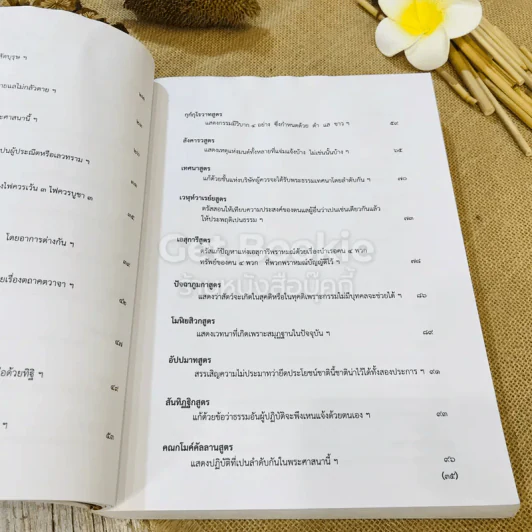 ตายแลไม่กลัวตาย ฯ
ระศาสนานี้ ฯ
เปนผู้ประณีตหรือเลวทราม ฯ
ไฟควรเว้น ๓ ไฟควรบูชา ๓
โดยอาการต่างกัน ฯ
ยเรื่องตถาคตวาจา ฯ
๔๒
๔๗
ด้วยทิฐิ ฯ
๔๙
ฯ
๕๓
แสดงกรรมมีวิบาก ๔ อย่าง ซึ่งกำหนดด้วย ดำ แล ขาว ฯ ๕๙
สังคารวสูตร
แสดงเหตุแห่งมนต์ทั้งหลายที่แจ่มแจ้งบ้าง ไม่เช่นนั้นบ้าง ฯ ๖๕
เทศนาสูตร
แก้ด้วยชั้นแห่งบริษัทผู้ควรจะได้รับพระธรรมเทศนาโดยลำดับกัน ฯ ๗๐
เวฬุทวาเรยยสูตร
ตรัสสอนให้เทียบความประสงค์ของตนแลผู้อื่นว่าเปนเช่นเดียวกันแล้ว
ให้ประพฤติเปนธรรม ฯ ๗๓
เอสุการีสูตร
ตรัสแก้ปัญหาแห่งเอสุการีพราหมณ์ด้วยเรื่องบำเรอคน ๔ พวก
ทรัพย์ของคน ๔ พวก ที่พวกพราหมณ์บัญญัติไว้ ฯ ๗๘
ปัจฉาภูมกาสูตร
แสดงว่าสัตว์จะเกิดในสุคติหรือในทุคติเพราะกรรมไม่มีบุคคลจะช่วยได้ ฯ ๘๖
โมฬิยสิวกสูตร
แสดงเวทนาที่เกิดเพราะสมุฏฐานในปัจจุบัน ฯ ๘๙
อัปปมาทสูตร
สรรเสริญความไม่ประมาทว่ายึดประโยชน์ชาตินี้ชาติน่าไว้ได้ทั้งสองประการ ฯ ๙๑
สันทิฏฐิกสูตร
แก้ด้วยข้อว่าธรรมอันผู้ปฏิบัติจะพึงเหนแจ้งด้วยตนเอง ฯ ๙๓
คณกโมคคัลลานสูตร
แสดงปฏิบัติที่เปนลำดับกันในพระศาสนานี้ ฯ ๙๖
(๓๕)
Get Bookie
ร้านหนังสือบุ๊คกี้